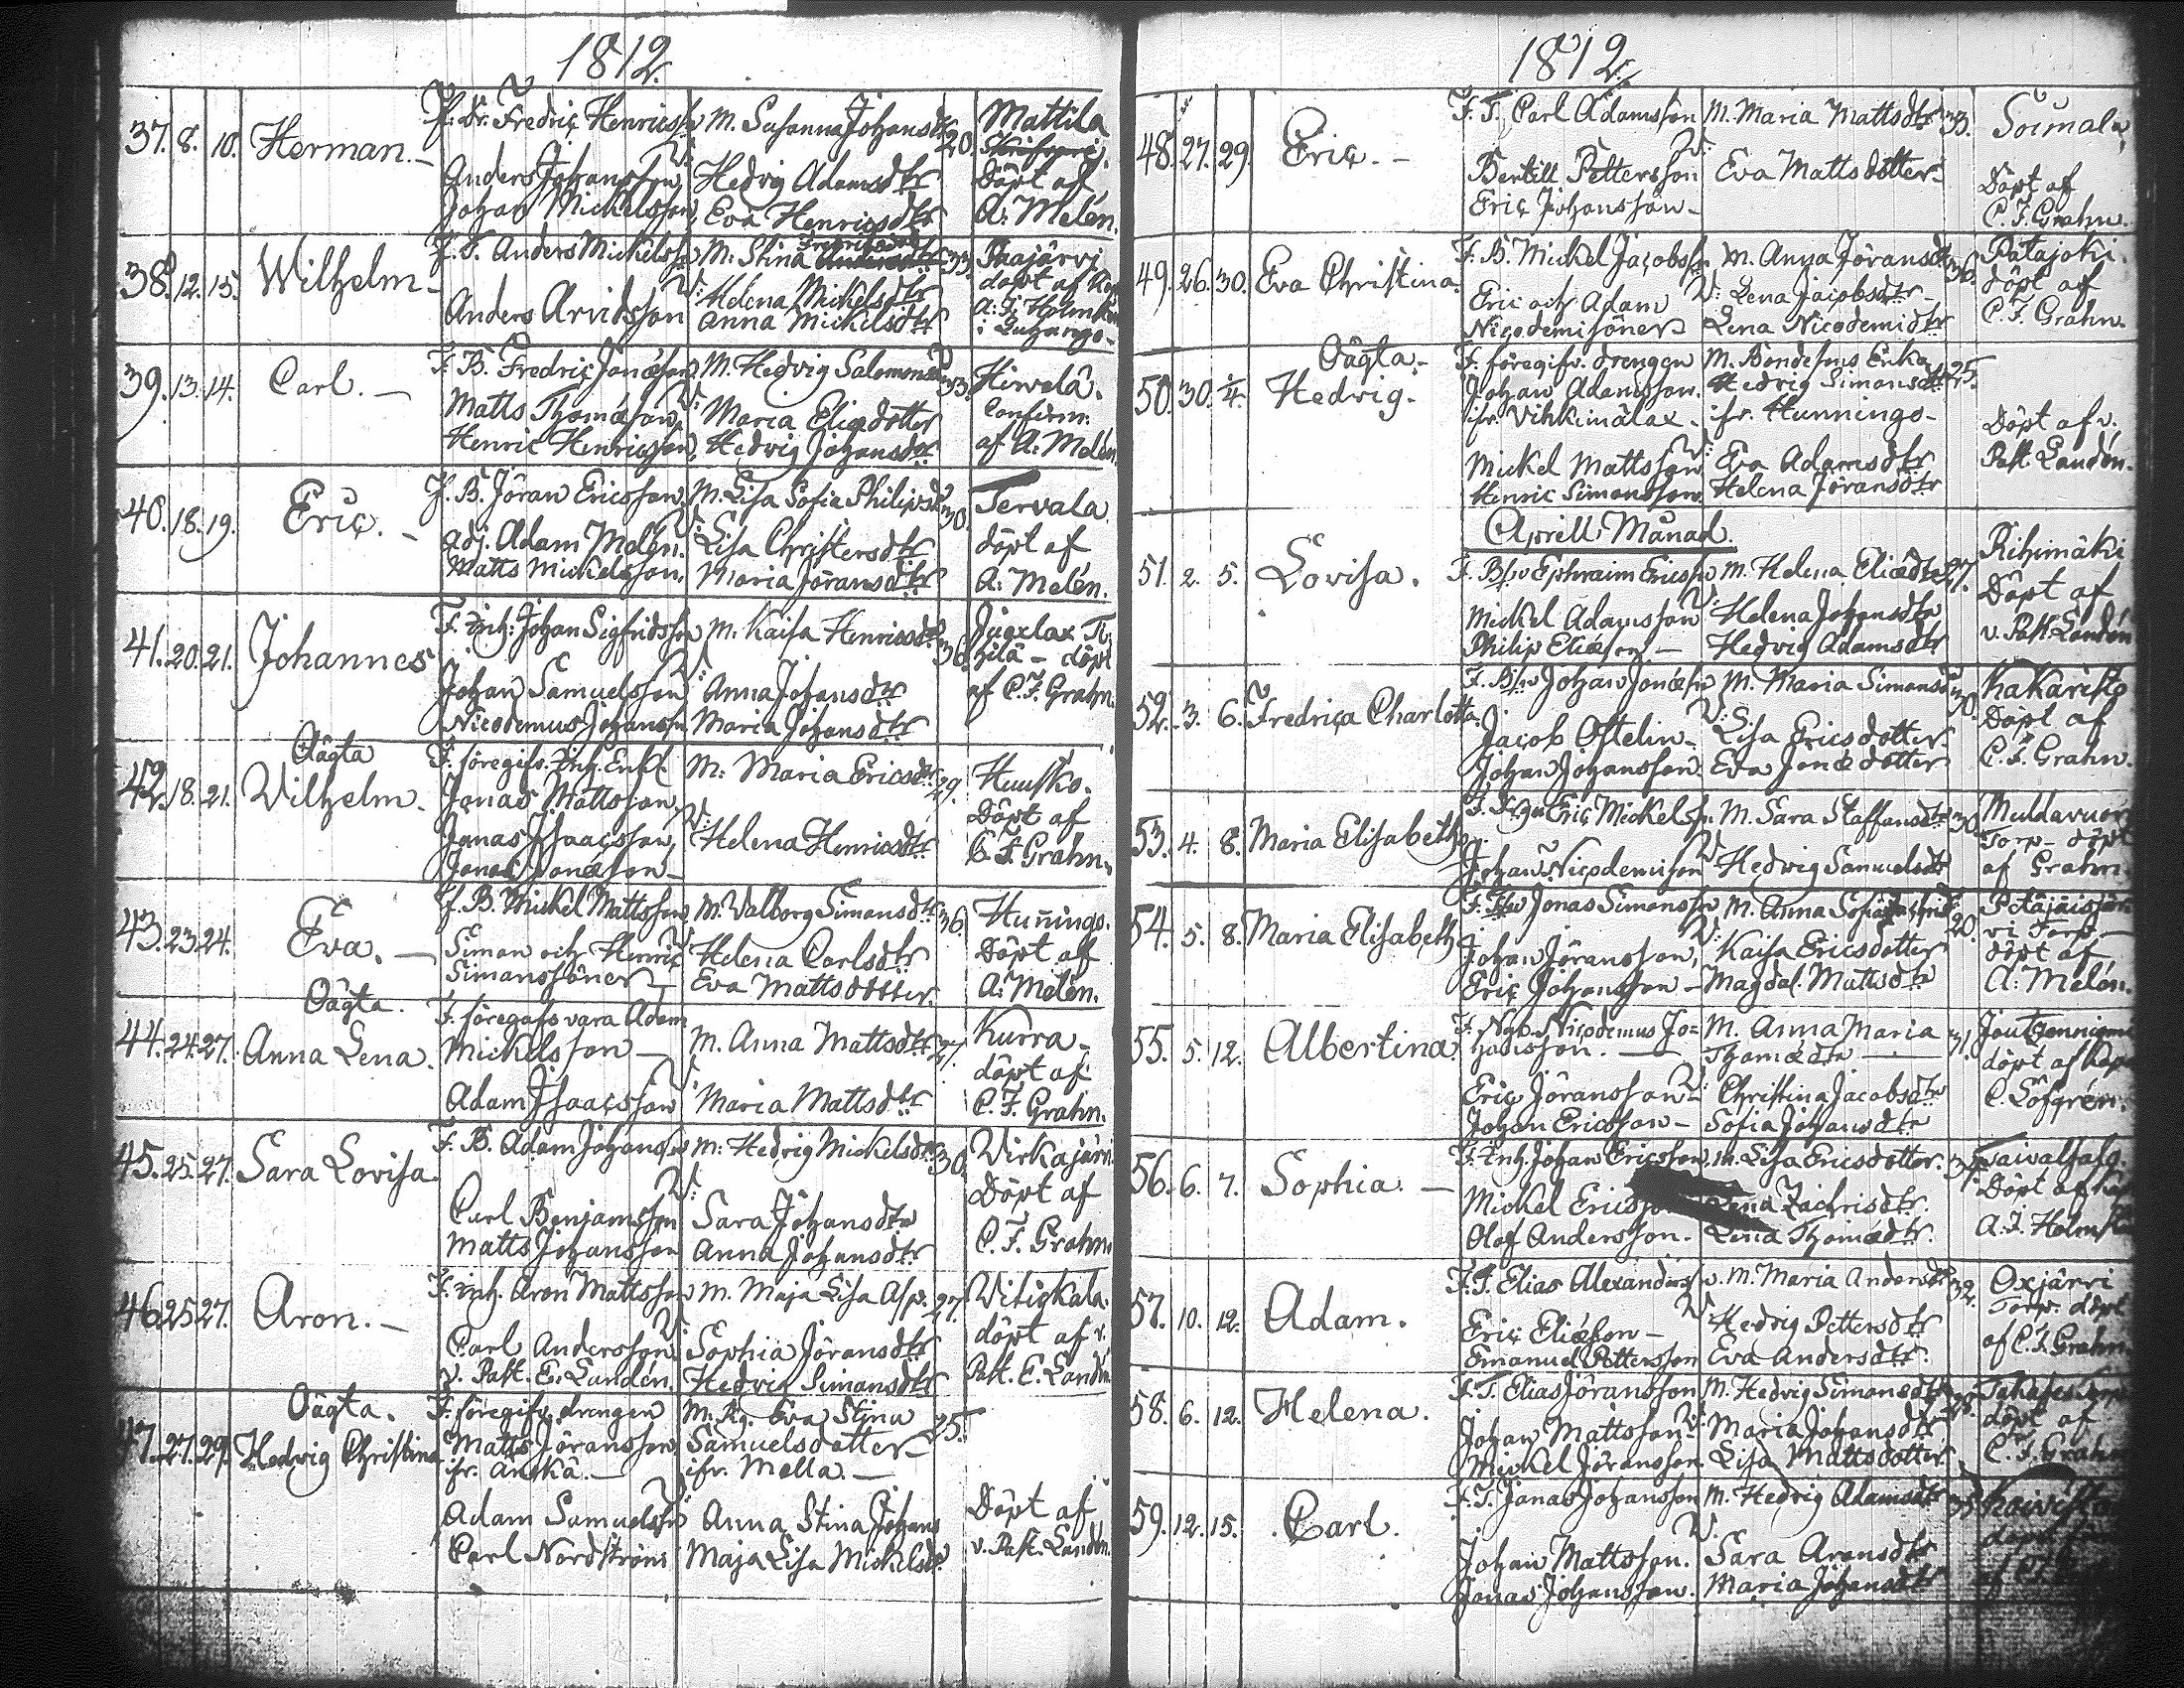 1812.
37. 8. 10. Herman. F. Dr. Fredric Henricss. M. Susanna Johansdtr 20. Mattila
V:
Anders Johansson Hedvig Adamsdtr Döpt af
Johan Mickelsson Eva Henricsdtr A: Melén.
38. 12. 15. Wilhelm F. T. Anders Mickelss. M: Stina Fredricsdtr 33. Pajärvi
V: Helena Mickelsdtr döpt af
Anders Arvidsson Anna Mickelsdtr A: F: Holm
i
39. 13. 14. Carl. F. B. Fredric Jonæson M. Hedvig Salomonsd 33. Hirvelä.
V: Confirm:
Matts Thomæson Maria Eliædotter
Henric Henricsson Hedvig Johansdtr af A: Melén
40. 18. 19. Eric. F. B. Jöran Ericsson M. Lisa Sofia Philipsd 30. Tervala
V:
adj. Adam Melén. Lisa Christersdtr döpt af
Matts Mickelsson. Maria Jöransdtr A: Melén.
41. 20. 21. Johannes F. Inh: Johan Sigfridsson M. Kaisa Henricsdtr 36. Jugxlax
döpt
V:
Johan Samuelsson Anna Johansdtr af C. F. Grahn.
Nicodemus Johanss. Maria Johansdtr
Oägta
42. 18. 21. Wilhelm. F. föregifv. Inh. Enkl. M: Maria Ericsdtr 29. Huusko.
Jonas Mattsson Döpt af
V:
Jonas Isaacsson Helena Henricsdtr C. F. Grahn.
Jonas Jonæson
43. 23. 24. Eva. F. B. Mickel Mattsson M. Valborg Simansdtr 36. Hunningo.
Siman och Henric Helena Carlsdtr Döpt af
Simanssöner Eva Mattsdotter. A: Melén.
Oägta.
44. 24. 27. Anna Lena. F. föregafs vara Adam
Mickelsson M. Anna Mattsdtr 27. Kurra
V: döpt af
Adam Isaacsson Maria Mattsdtr C. F. Grahn.
45. 25. 27. Sara Lovisa F. B. Adam Johanss. M: Hedvig Mickelsdtr 30. Virkajärvi
V: Döpt af
Carl Benjamsson Sara Johansdtr
Matts Johansson Anna Johansdtr C. F. Grahn.
46. 25 27. Aron. F. Inh. Aron Mattsson M. Maja Lisa Asp. 27. Vitickala.
V:
Carl Andersson Sophia Jöransdtr döpt af v.
v. Past. E. Landén. Hedvig Simansdtr Past. E. Landén.
Oägta.
47. 27. 29. Hedvig Christina F. föregifv. drengen M. Pig. Eva Stina 25.
Matts Jöransson Samuelsdotter
ifr. Anskä. ifr. Mella.
V:
Adam Samuelss. Anna Stina Johans Döpt af
Carl Nordström Maja Lisa Mickelsd v. Past. Landén.
1812.
48. 27. 29. Eric. F. T. Carl Adamsson M. Maria Mattsdtr 33. Soimala
V:
Bertill Pettersson Eva Mattsdotter Döpt af
Eric Johansson C. F. Grahn.
49. 26. 30. Eva Christina. F. B. Mickel Jacobss. M. Anna Jöransdt 36. Patajoki.
Eric och Adam V: Lena Jacobsdtr döpt af
Nicodemisöner Lena Nicodemidtr C. F. Grahn.
Oägta.
50. 30. 1/4. Hedvig. F. föregifv. drengen M. Bondesons Enka 25.
Johan Adamsson. Hedvig Simansdtr
ifr. Vihkimälax. ifr. Hunningo.
V: Döpt af v.
Mickel Mattsson Eva Adamsdtr Past. Landén.
Henric Simansson Helena Jöransdtr
Aprill Månad.
51. 2. 5. Lovisa. F. Bsn Ephraim Ericss. M. Helena Eliædtr 27. Rihimäki
V: Döpt af
Mickel Adamsson Helena Johansdtr
Philip Eliæson Hedvig Adamsdtr v. Past. Landén
52. 3. 6. Fredrica Charlotta. F. Bsn Johan Jonæss. M. Maria Simansd 30. Kakaristo
V: Döpt af
Jacob Ostelin. Lisa Ericsdotter.
Johan Johansson. Eva Jonædotter C. F. Grahn.
53. 4. 8. Maria Elisabeth. F. Eric Mickelss. M. Sara Staffansdtr 30. Muldavuori
V: Torp. döpt
Johan Nicodemison Hedvig Samuelsdtr af Grahn.
54. 5. 8. Maria Elisabeth F. Jonas Simansson M. Anna Sofia 20.
V: Torp.
Johan Jöransson, Kaisa Ericsdotter döpt af
Eric Johansson Magdal. Mattsdtr A: Melén.
55. 5. 12. Albertina F. Ngb. Nicodemus Jo- M. Anna Maria 31.
hansson. Thomædtr döpt af
V:
Eric Jöransson Christina Jacobsdtr C. Löfgrén.
Johan Ericsson Sofia Johansdtr
56. 6. 7. Sophia. F. Inh. Johan Ericsson. M. Lisa Ericsdotter. Taivalsalo.
Mickel Zachrisdtr. Döpt af
Olof Andersson. Lena Thomædtr. A. F. Holm
57. 10. 12. Adam. F. T. Elias Alexanderss. M. Maria Andersdtr 32. Oxjärvi
V: Torp. döpt
Eric Eliæson Hedvig Pettersdtr
Emanuel Pettersson Eva Andersdtr. af C. F. Grahn
58. 6. 12. Helena. F. T. Elias Jöransson M. Hedvig Simansdtr 28.
V: döpt af
Johan Mattsson Maria Johansdtr.
Mickel Jöransson Lisa Mattsdotter C. F. Grahn
59. 12. 15. Carl. F. T. Jonas Johansson M. Hedvig Adamsdtr 35. Koivisto
V:
Johan Mattsson. Sara Aronsdtr
Jonas Johansson. Maria Johansdtr